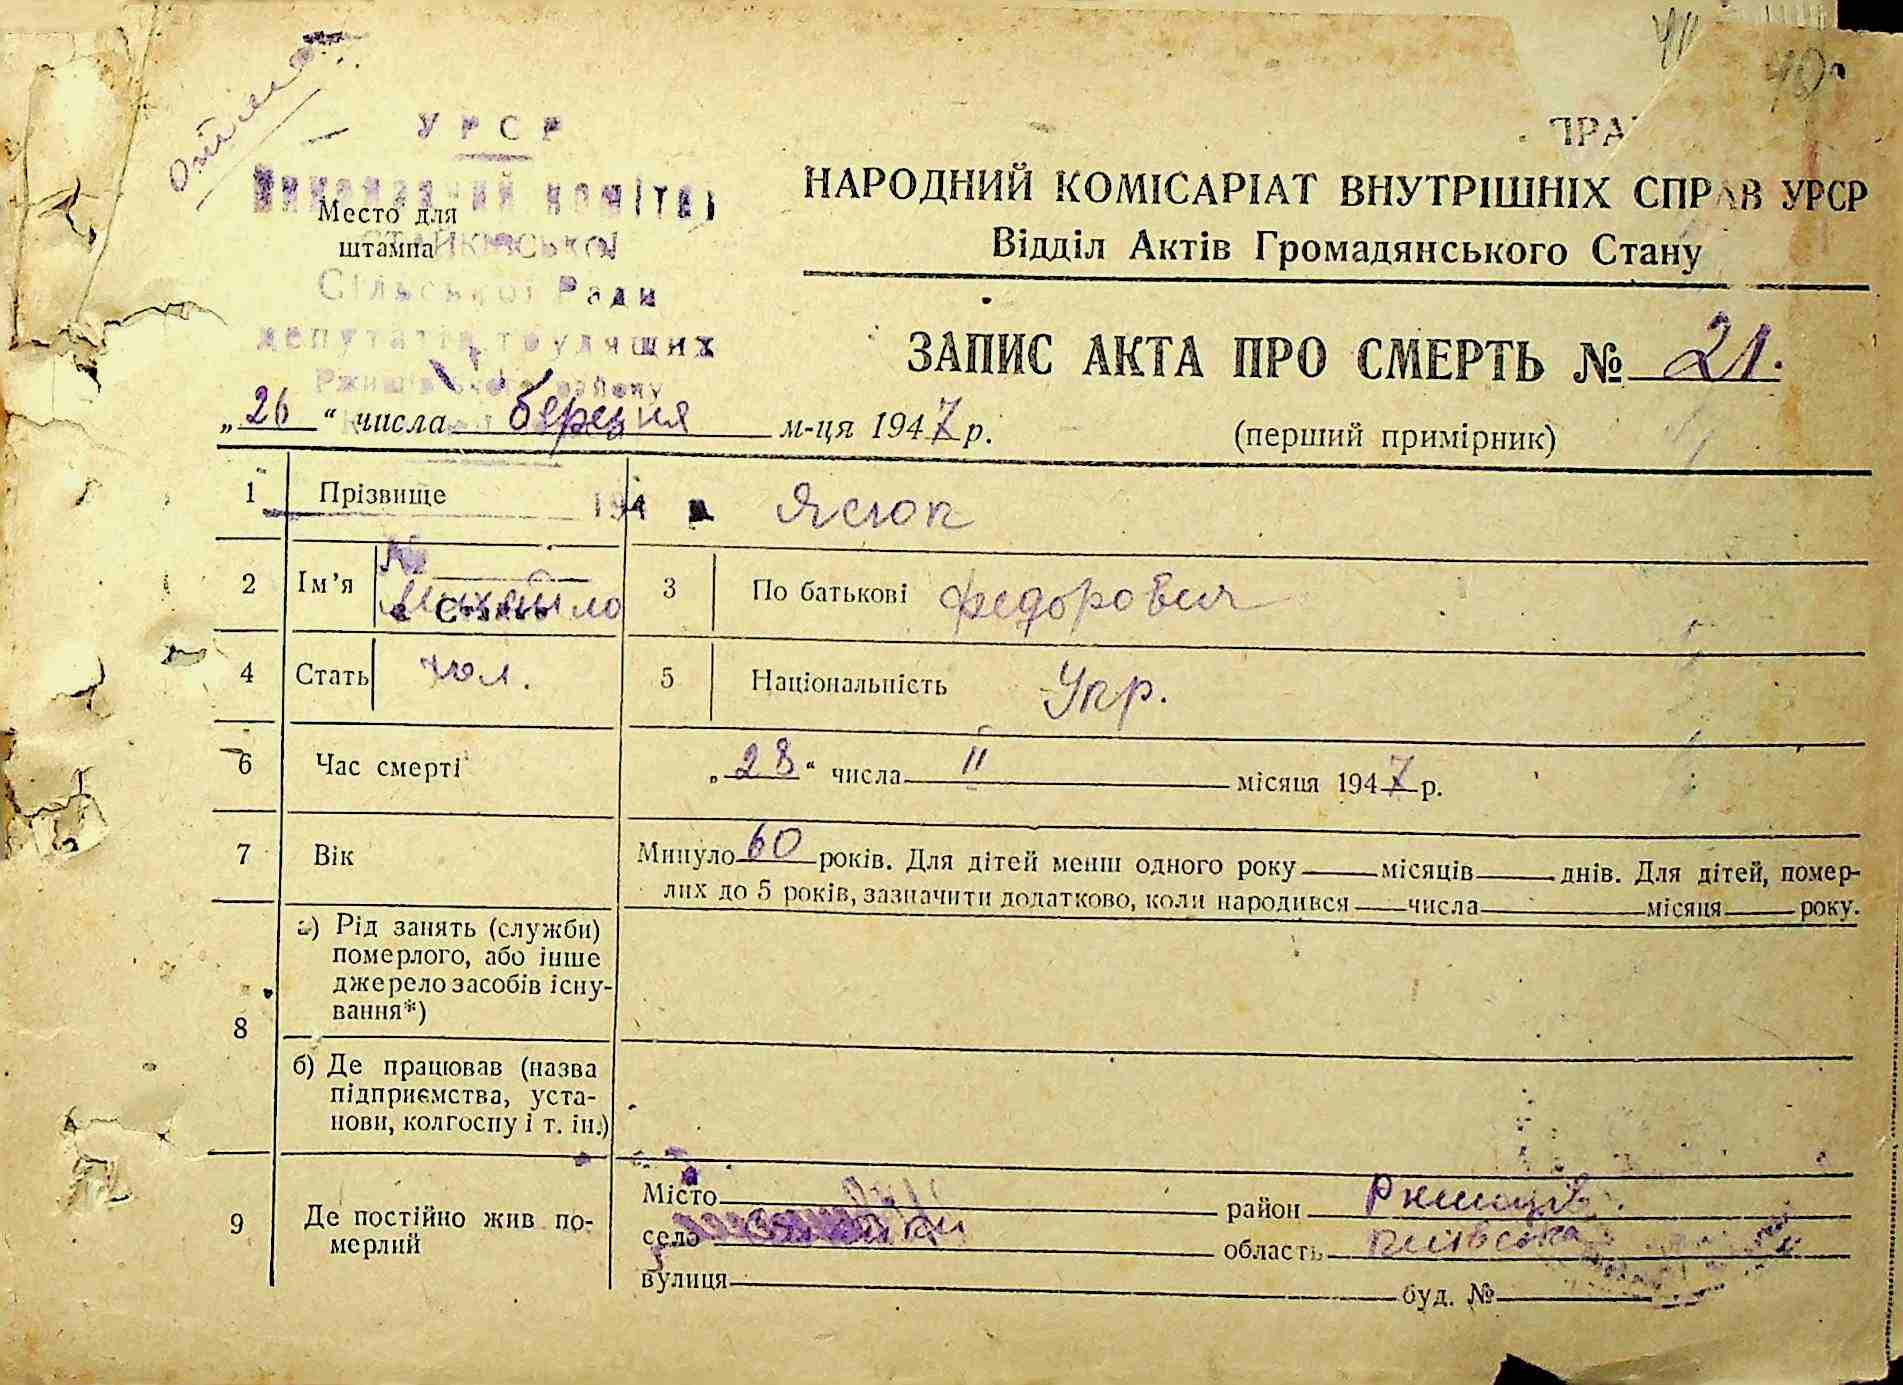 40
ПРА
УРСР
Виконавчий комітет
НАРОДНИЙ КОМІСАРІАТ ВНУТРІШНІХ СПРАВ УРСР
Место для
штампа
СТАЙКІВСЬКОЇ
Відділ Актів Громадянського Стану
Сільської Ради
депутатів трудящих
Ржищівського району
ЗАПИС АКТА ПРО СМЕРТЬ № 21.
„26“ числа березня м-ця 1947 р.
(перший примірник)
1 Прізвище
194
2 Ім’я Михайло
№
с. Стайки
3 По батькові Федорович
4 Стать чол.
5 Національність Укр.
6 Час смерті „28“ числа II місяця 1947 р.
7 Вік Минуло 60 років. Для дітей менш одного року місяців днів. Для дітей, помер-
лих до 5 років, зазначити додатково, коли народився числа місяця року.
8 а) Рід занять (служби)
померлого, або інше
джерело засобів існу-
вання*)
б) Де працював (назва
підприємства, уста-
нови, колгоспу і т. ін.)
9 Де постійно жив по-
мерлий
Місто район Ржищів.
село Стайки область Київська
вулиця буд. №